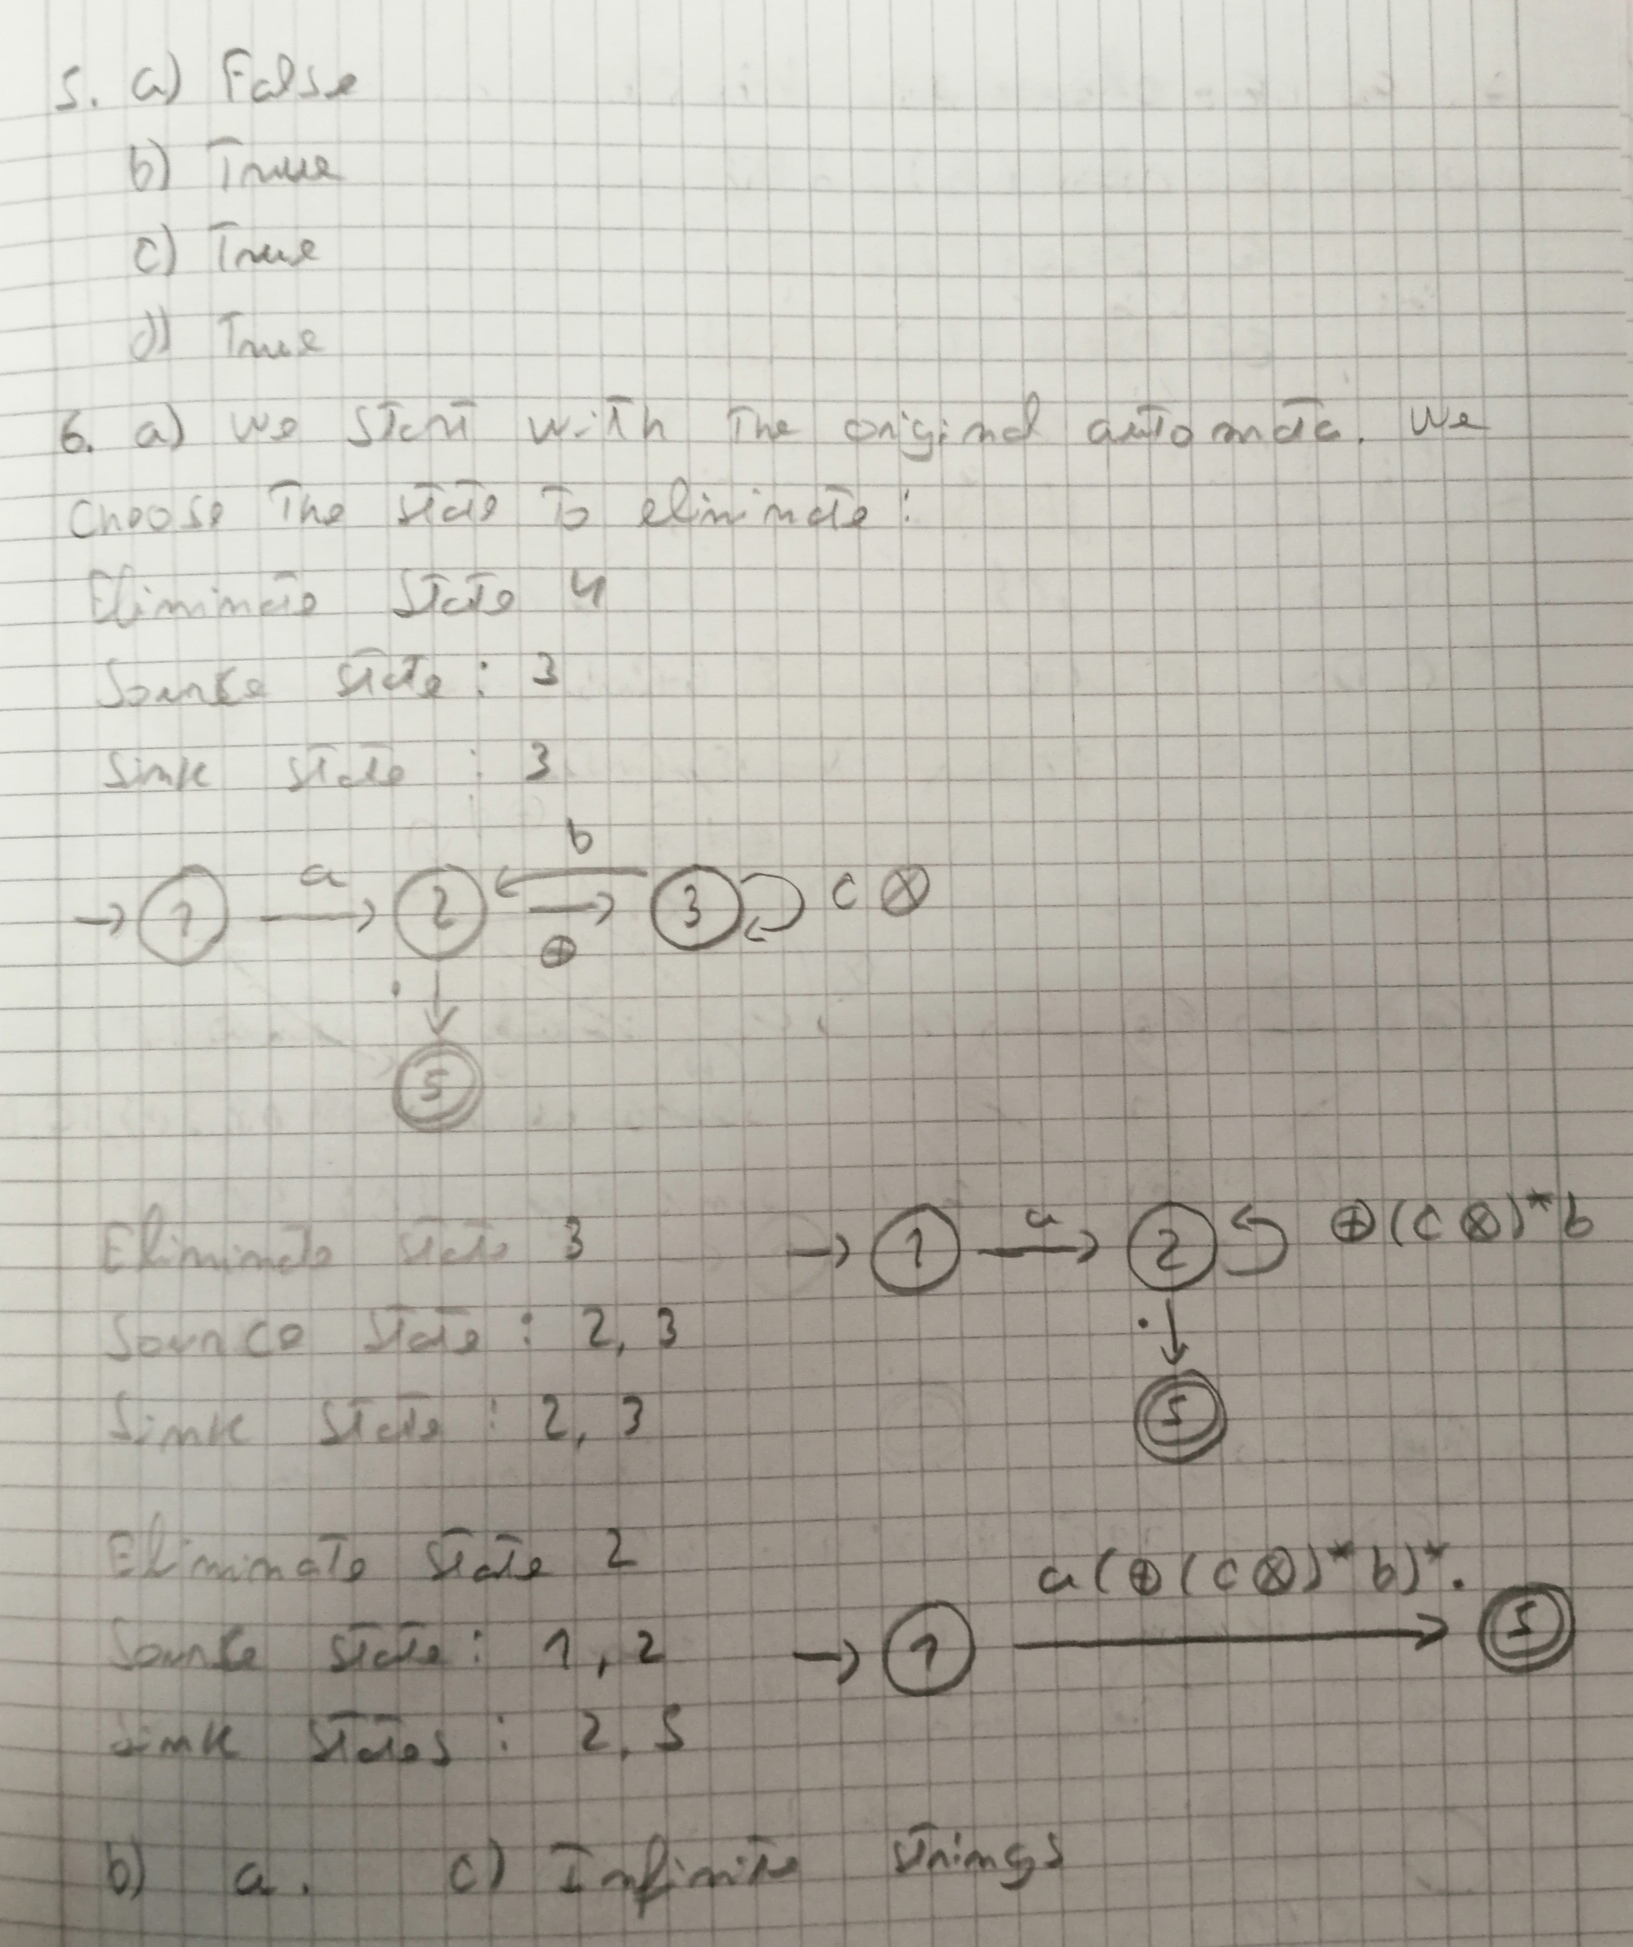 5. a) False
b) True
c) True
d) True
6. a) We start with the original automata. We
choose the state to eliminate:
Eliminate state 4
Source state: 3
Sink state: 3
b
→ 1 a → 2 ← → 3 c ⊗
⊕
.
5
Eliminate state 3
→ 1 a → 2 ⊕(c⊗)*b
Source state: 2, 3
.
Sink state: 2, 3
5
Eliminate state 2
a(⊕(c⊗)*b)*.
Source state: 1, 2
→ 1 → 5
Sink states: 2, 5
b) a. c) Infinite strings